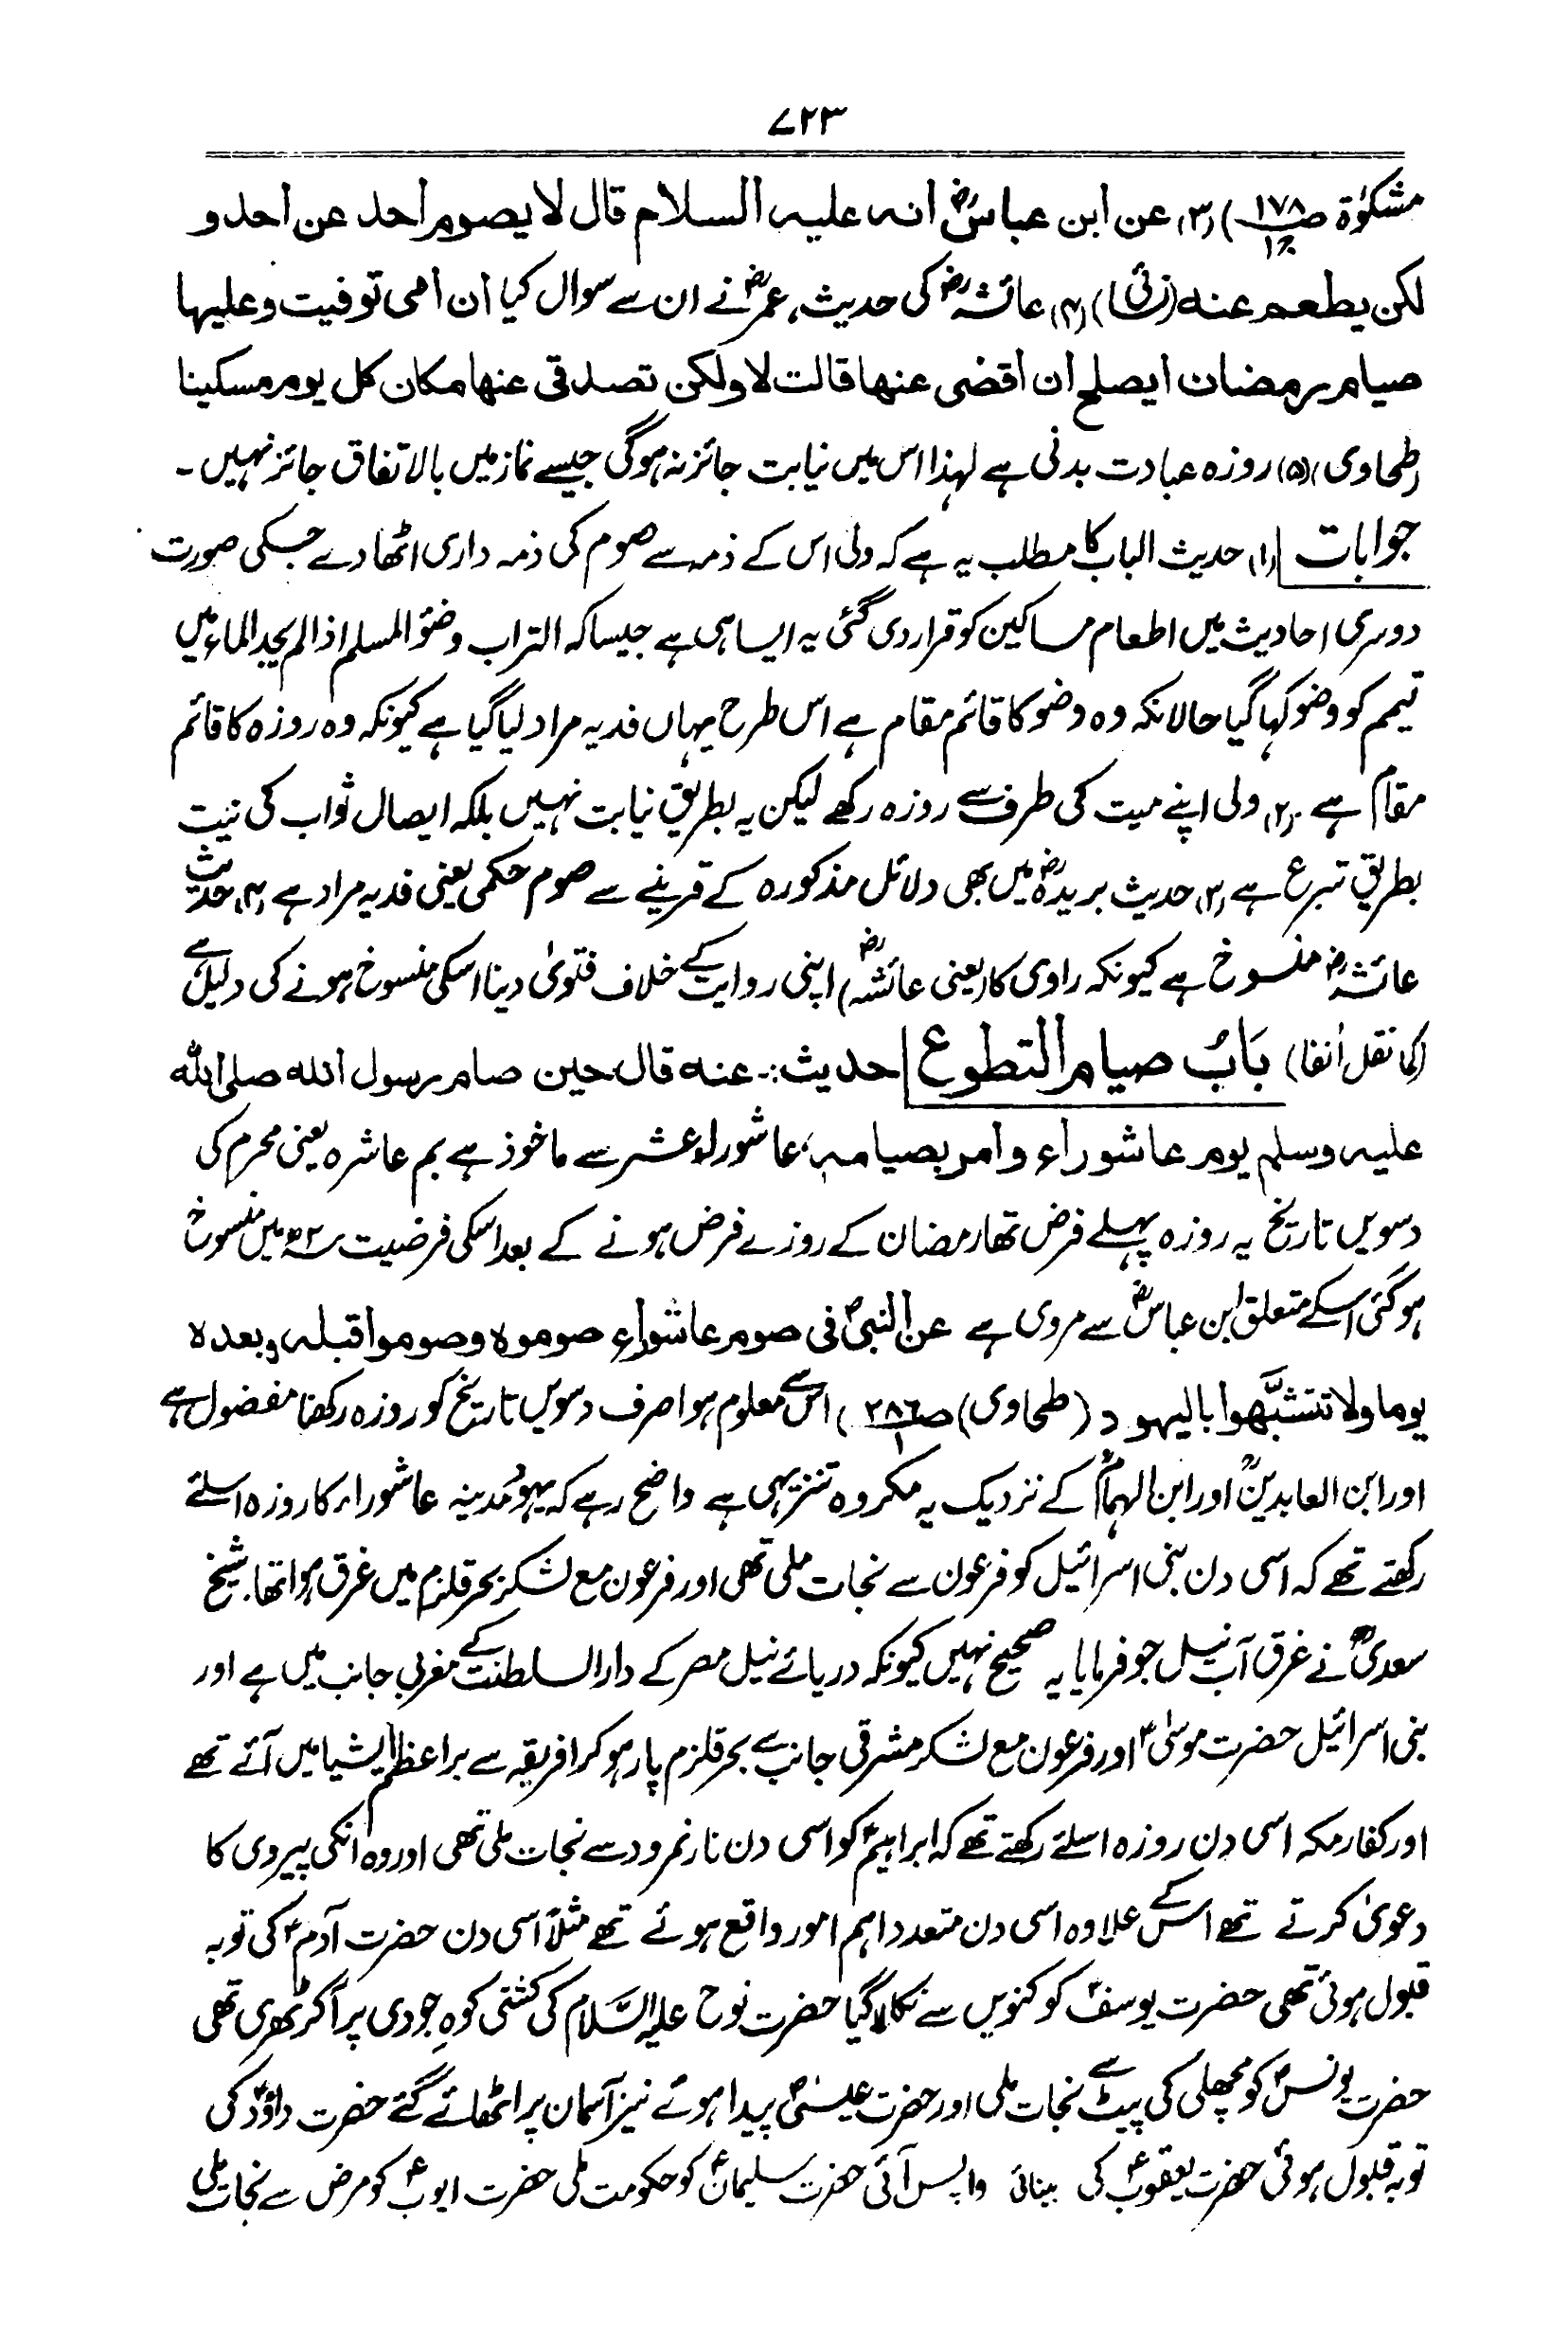 ۷۲۳
مشکوٰۃ ص۱۷۸) (۳) عن ابن عباسؓ انه عليه السلام قال لا يصوم أحد عن أحد و
لكن يطعم عنه (نسائی) (۴) عائشہؓ کی حدیث، عمرؓ نے ان سے سوال کیا أن أمى توفيت وعليها
صيام رمضان ايصلح أن أقضى عنها قالت لا ولكن تصدقى عنها مكان كل يوم مسكينا
(طحاوی) (۵) روزہ عبادت بدنی ہے لہٰذا اس میں نیابت جائز نہ ہوگی جیسے نماز میں بالاتفاق جائز نہیں ۔
جوابات (۱) حدیث الباب کا مطلب یہ ہے کہ ولی اس کے ذمہ سے صوم کی ذمہ داری اٹھا دے جسکی صورت
دوسری احادیث میں اطعام مساکین کو قرار دی گئی یہ ایسا ہی ہے جیسا کہ التراب وضوٴ المسلم اذا لم یجد الماء میں
تیمم کو وضو کہا گیا حالانکہ وہ وضو کا قائم مقام ہے اس طرح یہاں فدیہ مراد لیا گیا ہے کیونکہ وہ روزہ کا قائم
مقام ہے (۲) ولی اپنے میت کی طرف سے روزہ رکھے لیکن یہ بطریق نیابت نہیں بلکہ ایصال ثواب کی نیت
بطریق تبرع ہے (۳) حدیث بریدہؓ میں بھی دلائل مذکورہ کے قرینے سے صوم حکمی یعنی فدیہ مراد ہے (۴) حدیث
عائشہؓ منسوخ ہے کیونکہ راوی کا (یعنی عائشہؓ) اپنی روایت کے خلاف فتویٰ دینا اسکی منسوخ ہونے کی دلیل ہے
(کما نقل أنفا) بَابُ صيام التطوع حديث:- عنه قال حين صام رسول الله صلى الله
عليه وسلم يوم عاشوراء وأمر بصيامه، عاشوراء عشر سے ماخوذ ہے بم عاشرہ یعنی محرم کی
دسویں تاریخ یہ روزہ پہلے فرض تھا رمضان کے روزے فرض ہونے کے بعد اسکی فرضیت ۲ھ میں منسوخ
ہو گئی اسکے متعلق ابن عباسؓ سے مروی ہے عن النبیؐ فی صوم عاشوراء صوموہ وصوموا قبلہ وبعدہ
يوما ولا تتشبَّهوا باليهود (طحاوی) ص۲۸۶) اس سے معلوم ہوا صرف دسویں تاریخ کو روزہ رکھنا مفضول ہے
اور ابن العابدینؒ اور ابن الہمامؒ کے نزدیک یہ مکروہ تنزیہی ہے واضح رہے کہ یہود مدینہ عاشوراء کا روزہ اسلئے
رکھتے تھے کہ اسی دن بنی اسرائیل کو فرعون سے نجات ملی تھی اور فرعون مع لشکر بحر قلزم میں غرق ہوا تھا. شیخ
سعدیؒ نے غرق آب نیل جو فرمایا یہ صحیح نہیں کیونکہ دریائے نیل مصر کے دارالسلطنت کے مغربی جانب میں ہے اور
بنی اسرائیل حضرت موسیٰؑ اور فرعون مع لشکر مشرقی جانب سے بحر قلزم پار ہو کر افریقہ سے براعظم ایشیا میں آئے تھے
اور کفار مکہ اسی دن روزہ اسلئے رکھتے تھے کہ ابراہیمؑ کو اسی دن نار نمرود سے نجات ملی تھی اور وہ انکی پیروی کا
دعویٰ کرتے تھے اس کے علاوہ اسی دن متعدد اہم امور واقع ہوئے تھے مثلاً اسی دن حضرت آدمؑ کی توبہ
قبول ہوئی تھی حضرت یوسفؑ کو کنویں سے نکالا گیا حضرت نوح علیہ السَّلام کی کشتی کوہِ جودی پر آکر ٹھہری تھی
حضرت یونسؑ کو مچھلی کی پیٹ سے نجات ملی اور حضرت عیسیٰؑ پیدا ہوئے نیز آسمان پر اٹھائے گئے حضرت داوٗدؑ کی
توبہ قبول ہوئی حضرت یعقوبؑ کی بینائی واپس آئی حضرت سلیمانؑ کو حکومت ملی حضرت ایوبؑ کو مرض سے نجات ملی